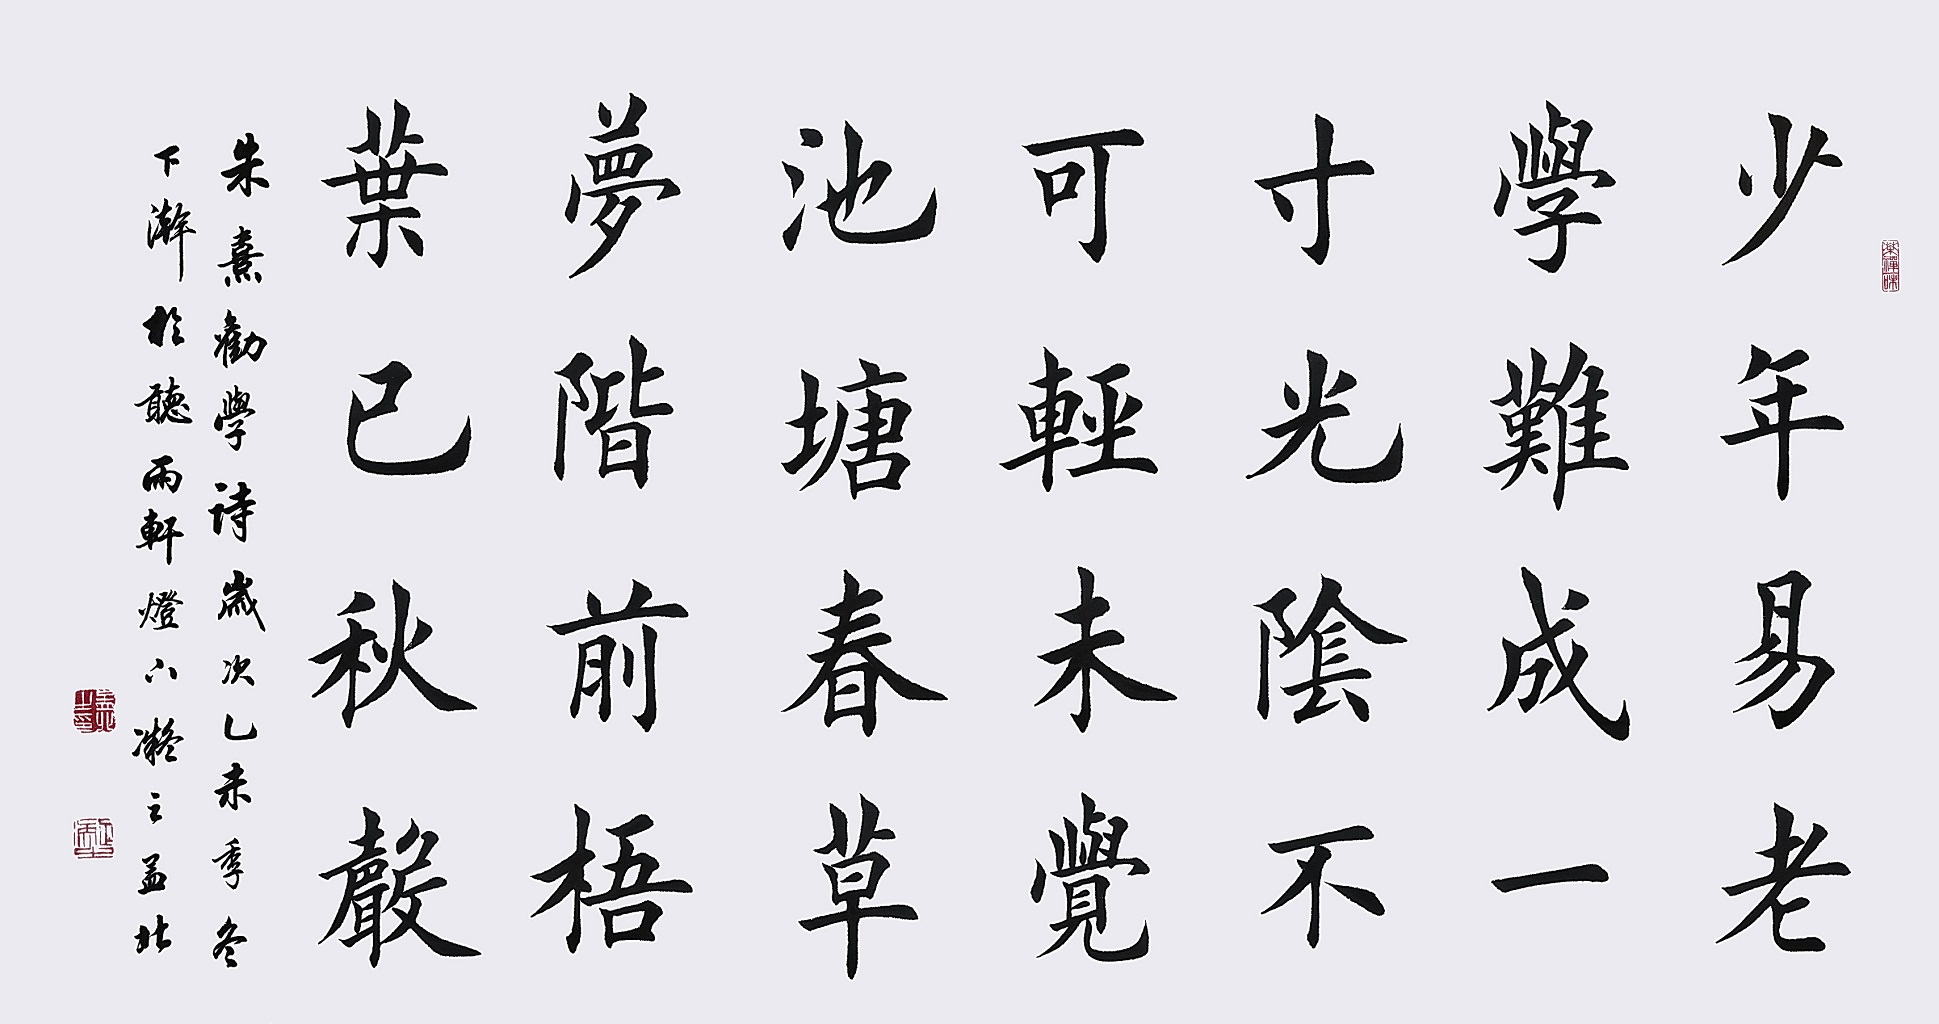 少年易老
學難成一
寸光陰不
可輕未覺
池塘春草
夢階前梧
葉已秋聲
朱熹勸學詩歲次乙未季冬
下澣於聽雨軒燈下凝之孟北